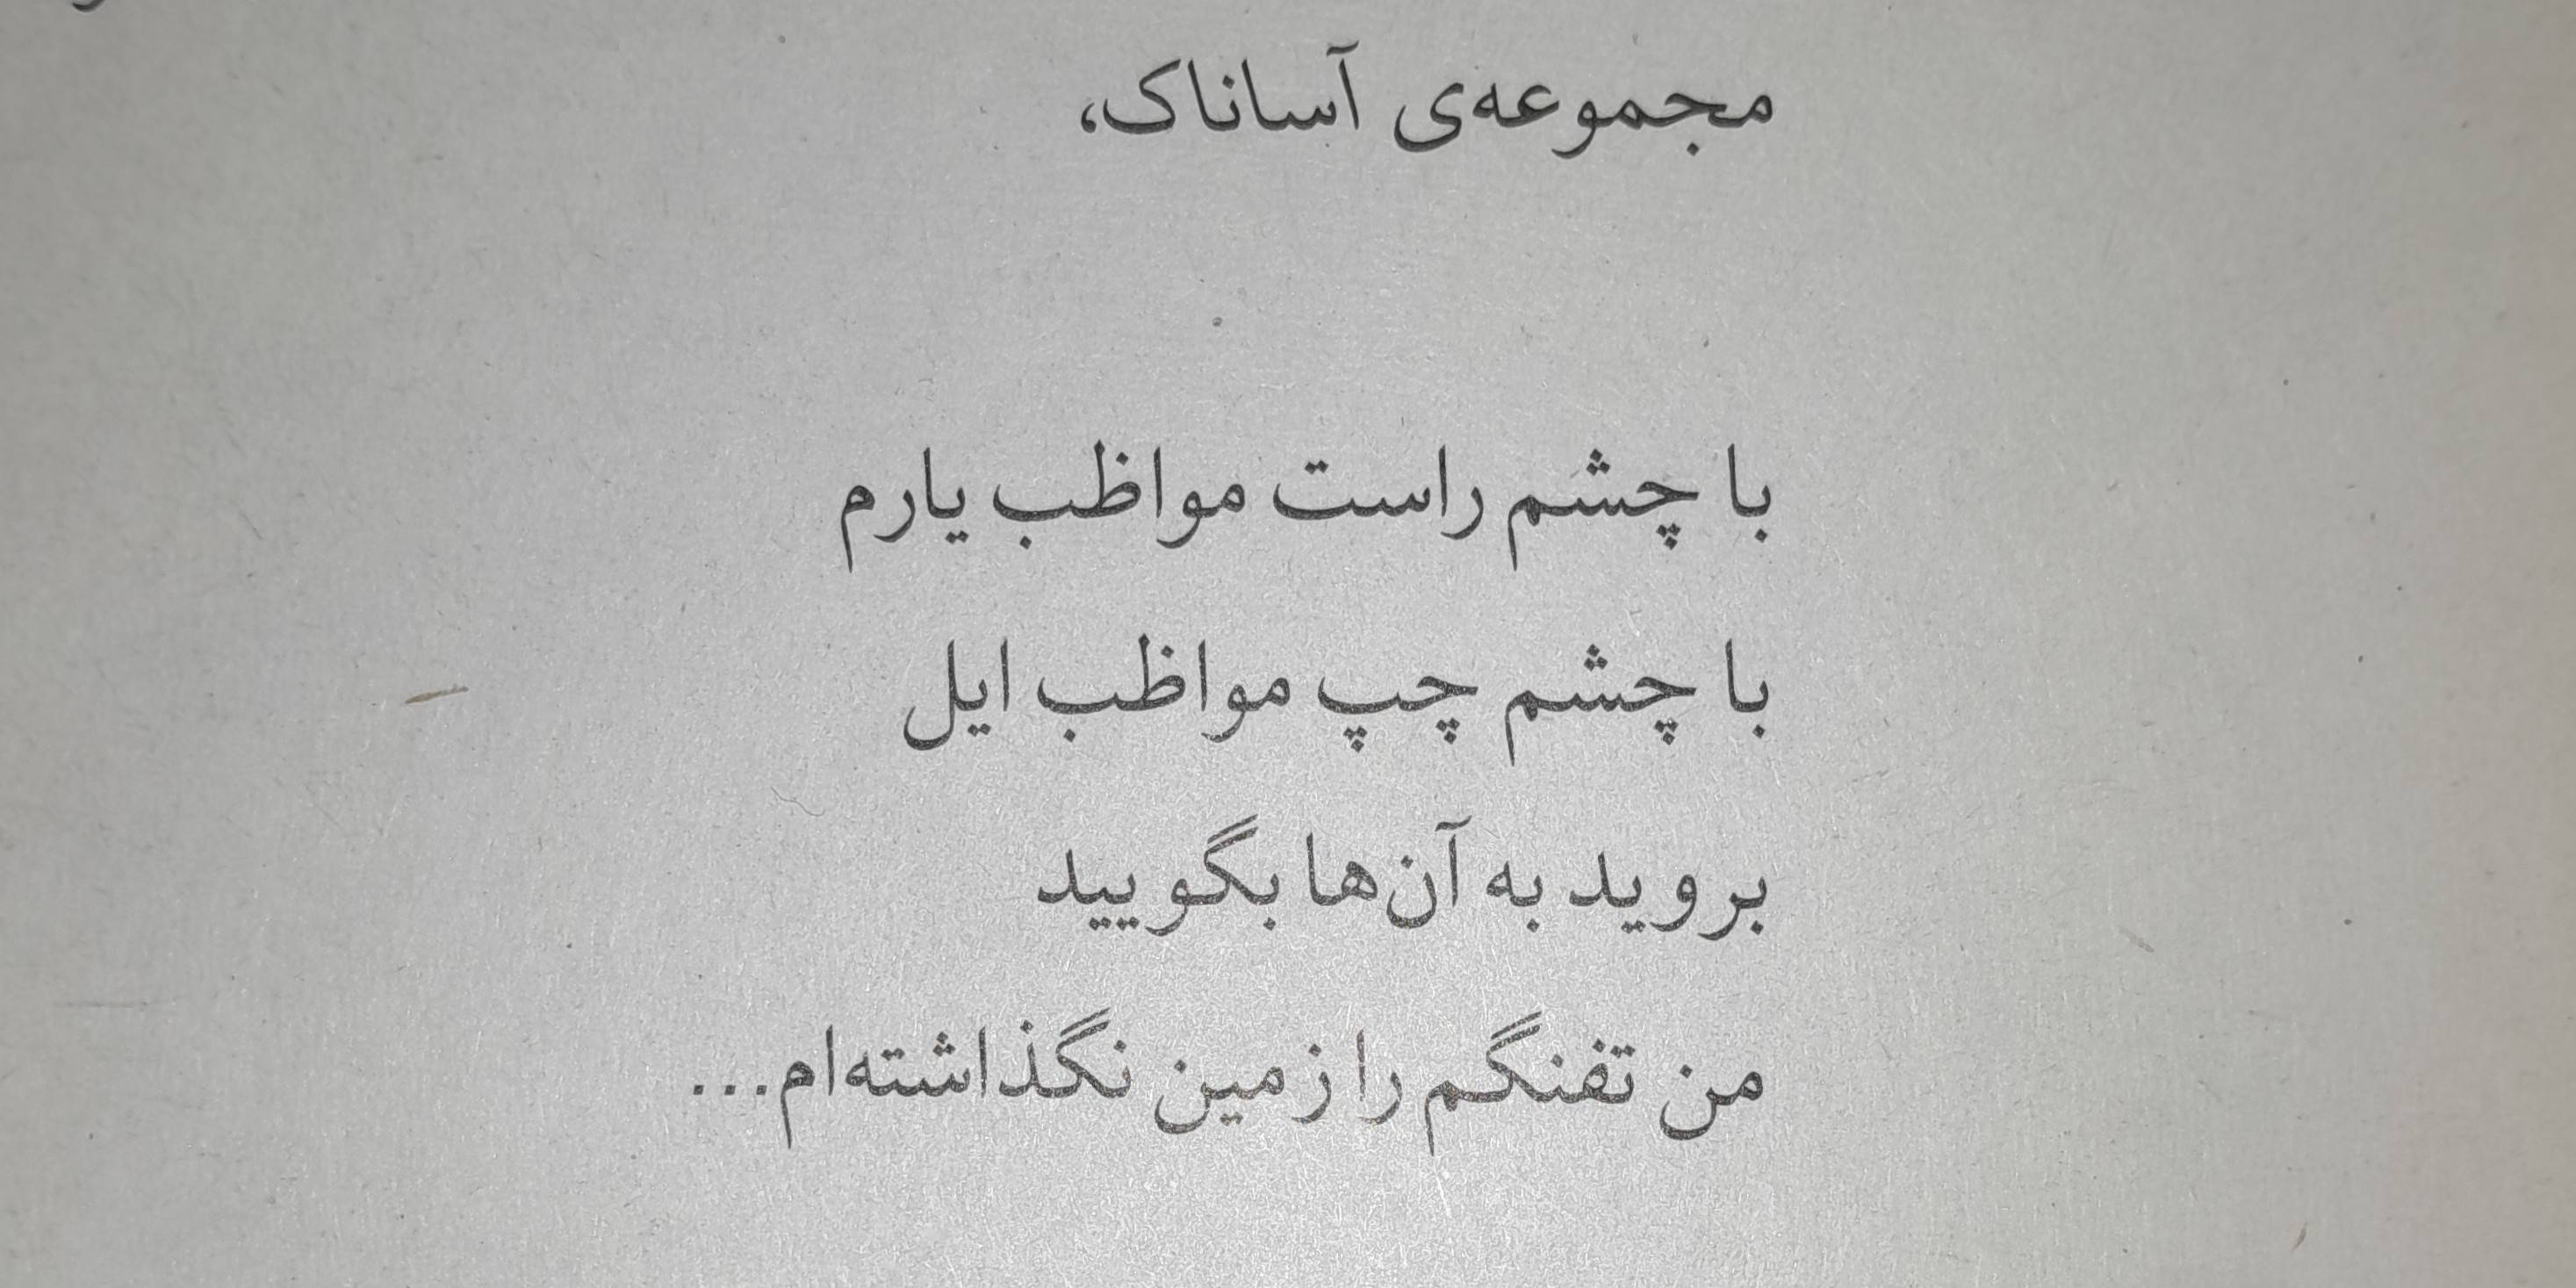 مجموعه‌ی آساناک،
با چشم راست مواظب یارم
با چشم چپ مواظب ایل
بروید به آن‌ها بگویید
من تفنگم را زمین نگذاشته‌ام...